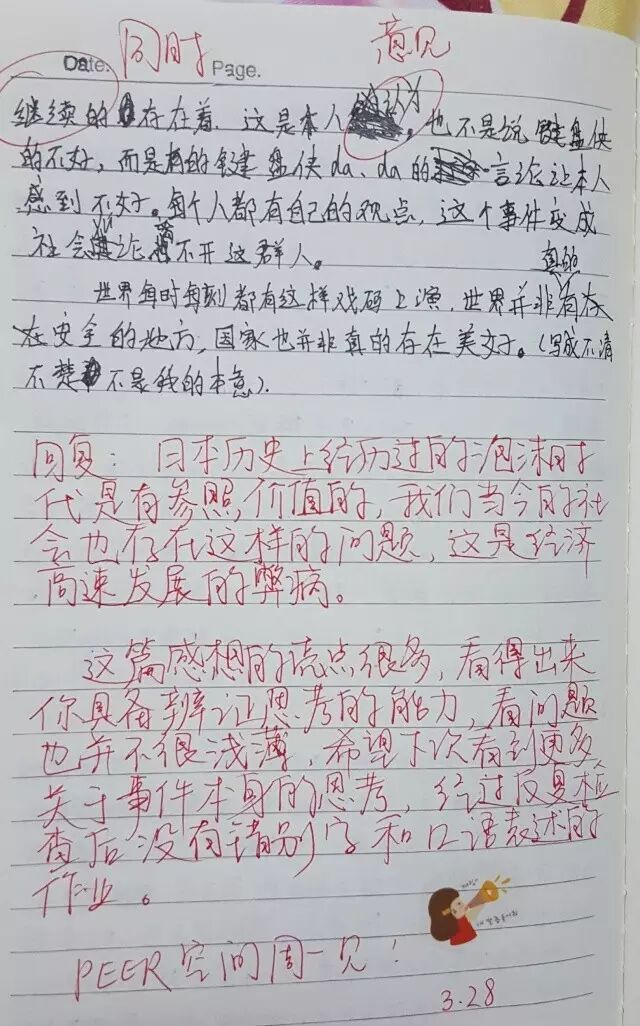 同时 意见
Date. Page.
继续的存在着,这是本人的认为。也不是说键盘侠
的不好,而是有的键盘侠da、da的言论让本人
感到不好。每个人都有自己的观点,这个事件变成
社会yu论离不开这群人。
真的
世界每时每刻都有这样戏码上演,世界并非有存
在安全的地方,国家也并非真的存在美好。(写成不清
不楚不是我的本意)。
回复:日本历史上经历过的泡沫时
代是有参照价值的,我们当今的社
会也存在这样的问题,这是经济
高速发展的弊病。
这篇感想的亮点很多,看得出来
你具备辨证思考的能力,看问题
也并不很浅薄,希望下次看到更多
关于事件本身的思考,经过反复检
查后没有错别字和口语表述的
作业。
PEER空间周一见!
3.28